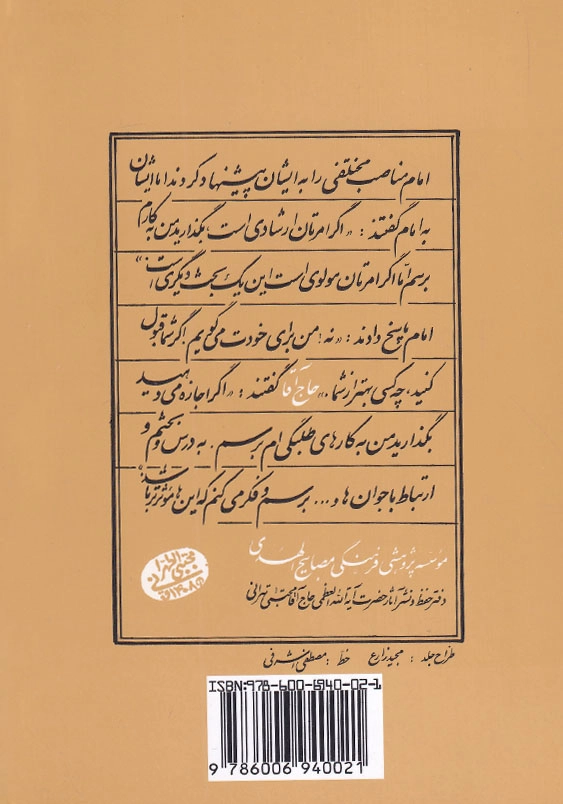 امام مناصب مختلفی را به ایشان پیشنهاد کردند اما ایشان
به امام گفتند: «اگر امرتان ارشادی است، بگذارید من به کارم
برسم اما اگر امرتان مولوی است این یک بحث دیگری است.»
امام پاسخ دادند: «نه! من برای خودت می‌گویم! اگر شما قبول
کنید، چه کسی بهتر از شما.» حاج آقا گفتند: «اگر اجازه می‌دهید
بگذارید من به کارهای طلبگی‌ام برسم. به درس و بحثم و
ارتباط با جوان‌ها و... برسم و فکر می‌کنم که این‌ها مؤثرتر باشد.»
مؤسسه پژوهشی فرهنگی مصابیح الهدی
دفتر حفظ و نشر آثار حضرت آیة الله العظمی حاج آقا مجتبی تهرانی
طراح جلد: مجید زارع خط: مصطفی اشرفی
ISBN:978-600-6940-02-1
9 786006 940021